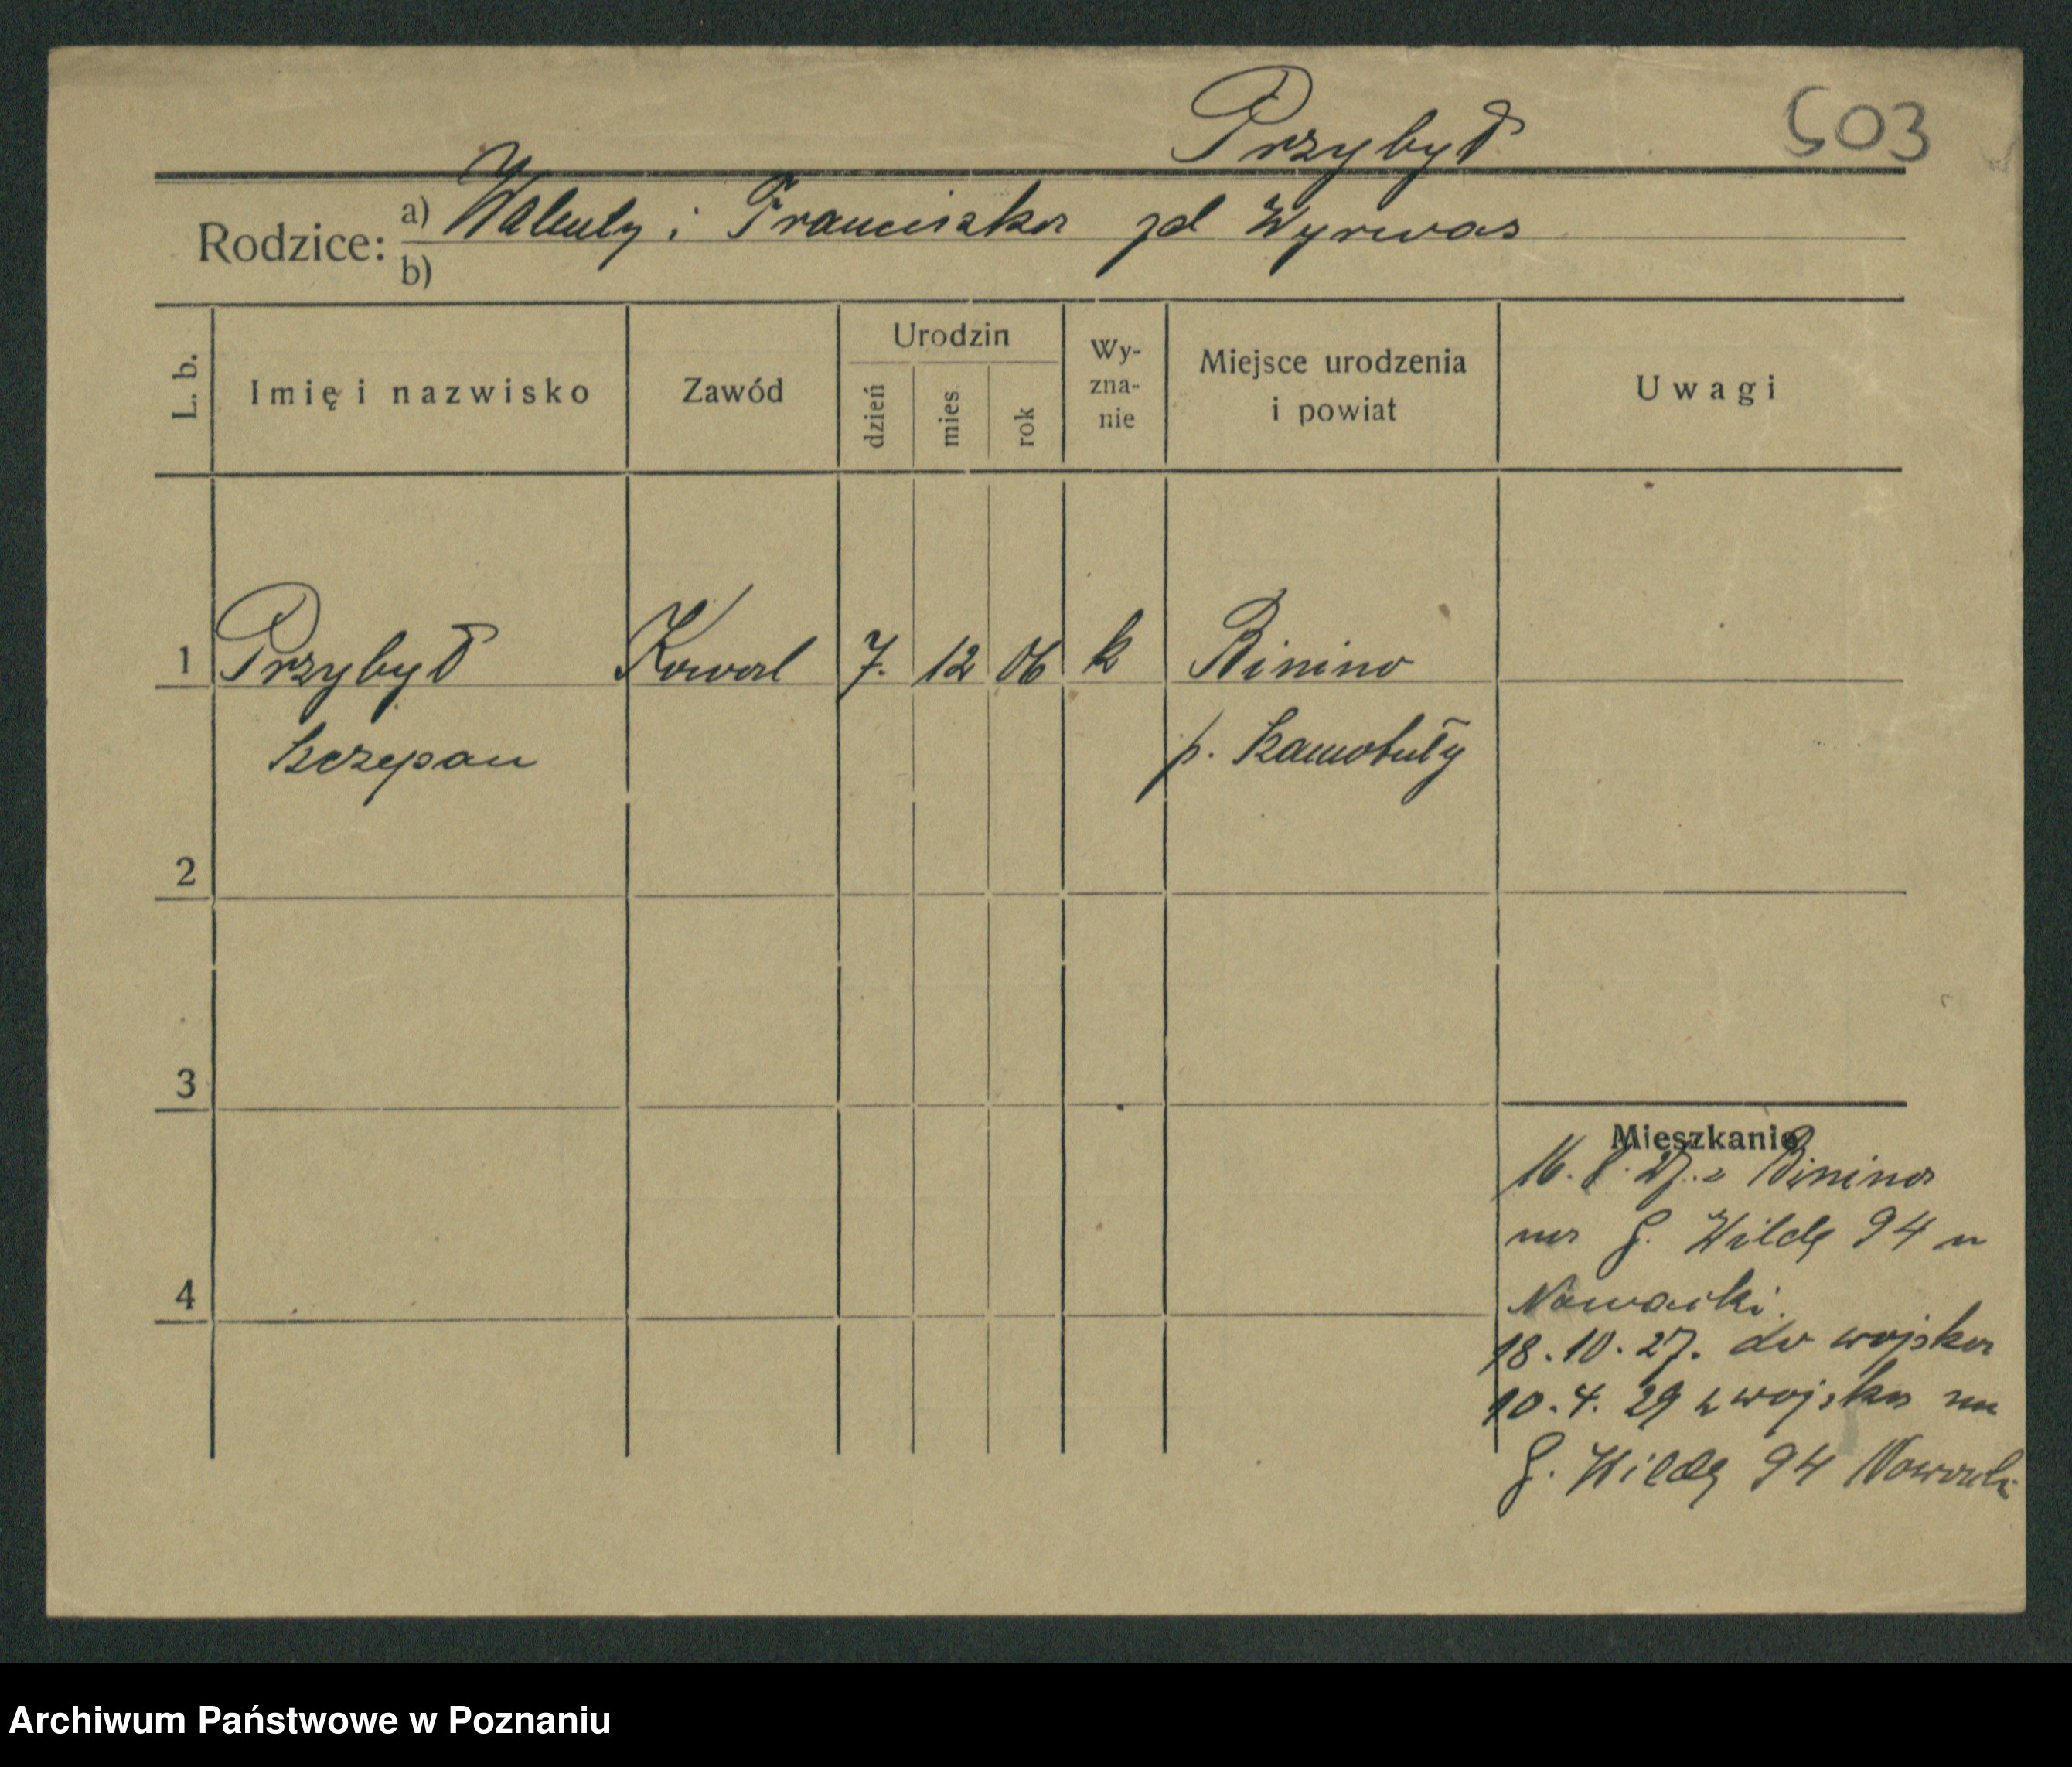 Przybył
503
Rodzice: a) Walenty i Franciszka zd Wyrwas
b)
L. b.
Imię i nazwisko
Zawód
Urodzin
dzień
mies
rok
Wy-
zna-
nie
Miejsce urodzenia
i powiat
Uwagi
1 Przybył Kowal 7. 12 06 k Binino
Szczepan p. Szamotuły
2
3
4
Mieszkanie
16. 8. 27. z Binina
na G. Wildę 94 u
Nowacki.
18. 10. 27. do wojska
10. 4. 29 z wojska na
G. Wildę 94 Nowacki
Archiwum Państwowe w Poznaniu